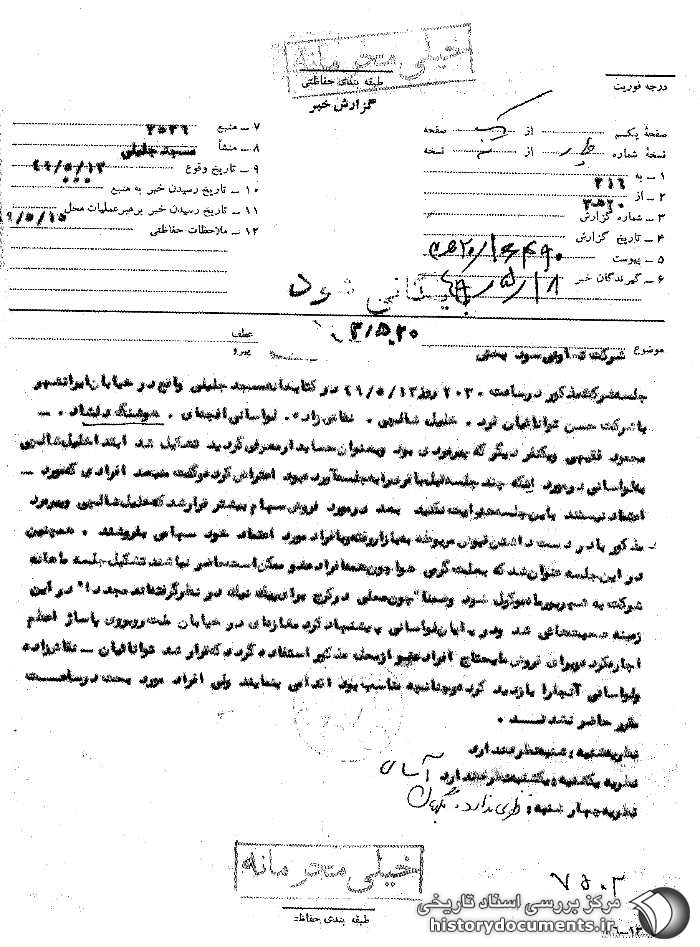 خیلی محرمانه
طبقه بندی حفاظتی
گزارش خبر
درجه فوریت
صفحهٔ یکم از صفحه
نسخهٔ شماره از نسخه
۱ ــ به ۳۱۶
۲ ــ از
۳ ــ شماره گزارش
۴ ــ تاریخ گزارش
۵ ــ پیوست
۶ ــ گیرندگان خبر
۷ ــ منبع
۸ ــ منشأ مسجد جلیلی
۹ ــ تاریخ وقوع ۴۹/۵/۱۳
۱۰ ــ تاریخ رسیدن خبر به منبع
۱۱ ــ تاریخ رسیدن خبر برهبر عملیات محل ۹/۵/۱۵
۱۲ ــ ملاحظات حفاظتی
بایگانی شود
موضوع شرکت تعاونی سود بخش
عطف
پیرو
جلسه شرکت مذکور در ساعت ۲۰۳۰ روز ۴۹/۵/۱۳ در کتابخانه مسجد جلیلی واقع در خیابان ایرانشهر
با شرکت حسن توانائیان فرد . خلیل شالچی . نقاش زاده . لواسانی . هوشنگ دلشاد . ــ
محمود فقیهی ویکنفر دیگر که پیرمردی بود وبعنوان حسابدار معرفی گردید تشکیل شد ابتدا خلیل شالچی
به لواسانی در مورد اینکه چند جلسه قبل باقرخرا به جلسه آورده بود اعتراض کرد وگفت منبعد افرادی که مورد ــ
اعتماد نیستند باین جلسه هدایت نکنید بعد در مورد فروش سهام بیشتر قرار شد که خلیل شالچی وپیرمرد
مذکور با در دست داشتن قبوض مربوطه به بازار رفته وبافراد مورد اعتماد خود سهامی بفروشند . همچنین
در این جلسه عنوان شد که بعلت گرمی هوا چون همه افراد عضو ممکن است حاضر نباشند تشکیل جلسه ماهانه
شرکت به شهریور ماه موکول شود وضمنا" چون محلی در کرج برای پیک نیک در نظر گرفته اند مجددا" در این
زمینه صحبتهائی شد ودر پایان لواسانی پیشنهاد کرد مغازه ای در خیابان ملت روبروی پاساژ اعظم
اجاره کرده وبرای فروش مایحتاج افراد عضو از محل مذکور استفاده گردد که قرار شد توانائیان ــ نقاش زاده
ولواسانی آنجا را بازدید کرده وچنانچه مناسب بود اقدامی بنمایند ولی افراد مورد بحث در ساعت
مقرر حاضر نشدنــد .
نظریه شنبه : شنبه نظری ندارد
نظریه یکشنبه : یکشنبه نظری ندارد آسای
نظریه چهارشنبه : نظری ندارد . نگهبان
خیلی محرمانه
طبقه بندی حفاظتی
مرکز بررسی اسناد تاریخی
historydocuments.ir